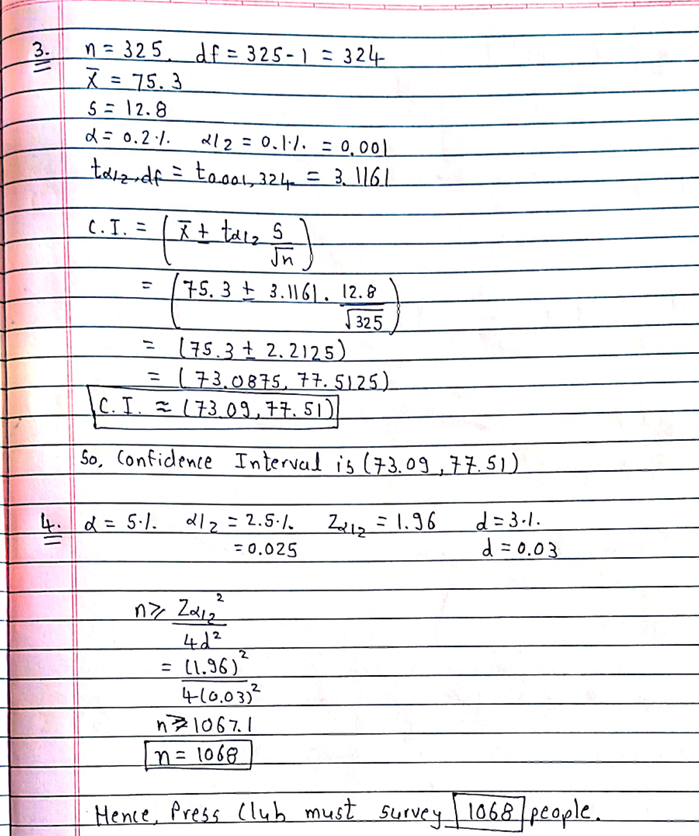 3. n = 325, df = 325 - 1 = 324
x̄ = 75.3
s = 12.8
α = 0.2% α/2 = 0.1% = 0.001
tα/2,df = t0.001,324 = 3.1161
C.I. = (x̄ ± tα/2 s/√n)
= (75.3 ± 3.1161 . 12.8/√325)
= (75.3 ± 2.2125)
= (73.0875, 77.5125)
C.I. ≈ (73.09, 77.51)
So, Confidence Interval is (73.09, 77.51)
4. α = 5% α/2 = 2.5% Zα/2 = 1.96 d = 3%
= 0.025 d = 0.03
n ≥ Zα/2²/4d²
= (1.96)²/4(0.03)²
n ≥ 1067.1
n = 1068
Hence, Press Club must survey 1068 people.